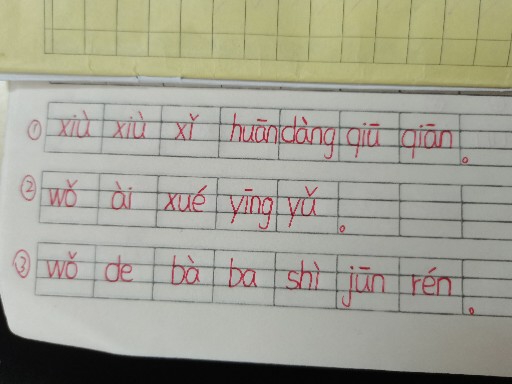 ① xiù xiù xǐ huān dàng qiū qiān 。
② wǒ ài xué yīng yǔ 。
③ wǒ de bà ba shì jūn rén 。